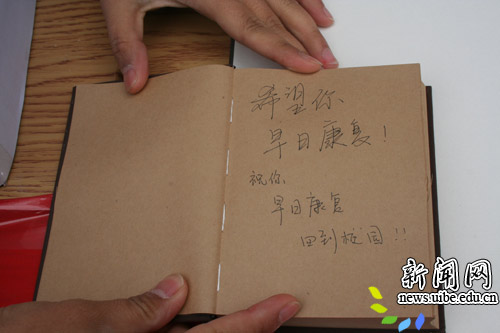 希望你
早日康复!
祝你
早日康复
回到校园!!
新闻网
news.uibe.edu.cn